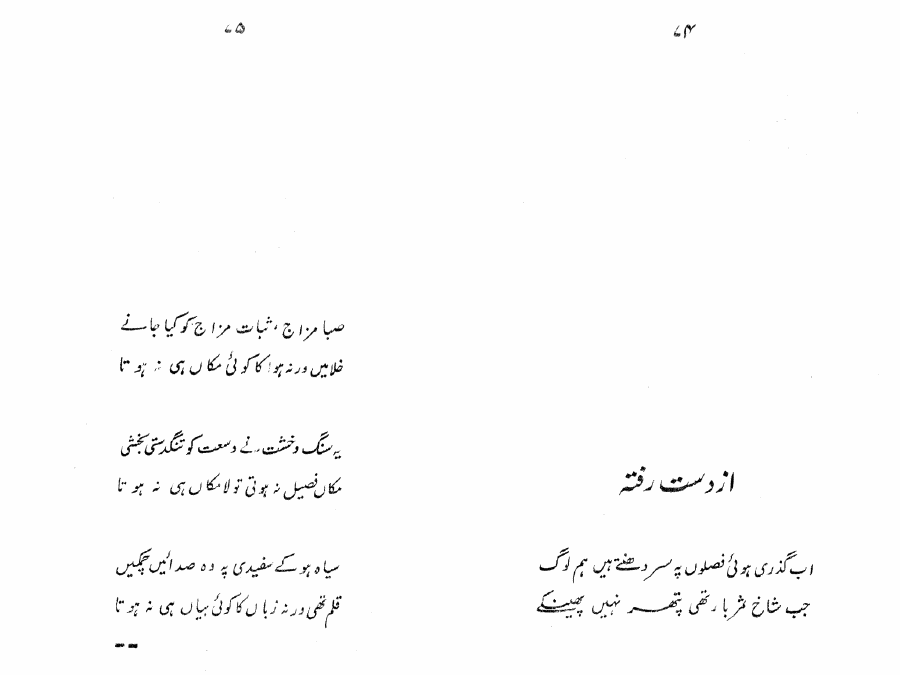 ۷۴
از دست رفتہ
اب گذری ہوئی فصلوں پہ سر دھنتے ہیں ہم لوگ
جب شاخ ثمر بار تھی پتھر نہیں پھینکے
۷۵
صبا مزاج، ثبات مزاج کو کیا جانے
خلا میں ورنہ ہوا کا کوئی مکاں ہی نہ ہوتا
یہ سنگ و خشت نے وسعت کو تنگدستی بخشی
مکاں فصیل نہ ہوتی تو لا مکاں ہی نہ ہوتا
سیاہ ہو کے سفیدی پہ وہ صدائیں چمکیں
قلم تھی ورنہ زباں کا کوئی بیاں ہی نہ ہوتا